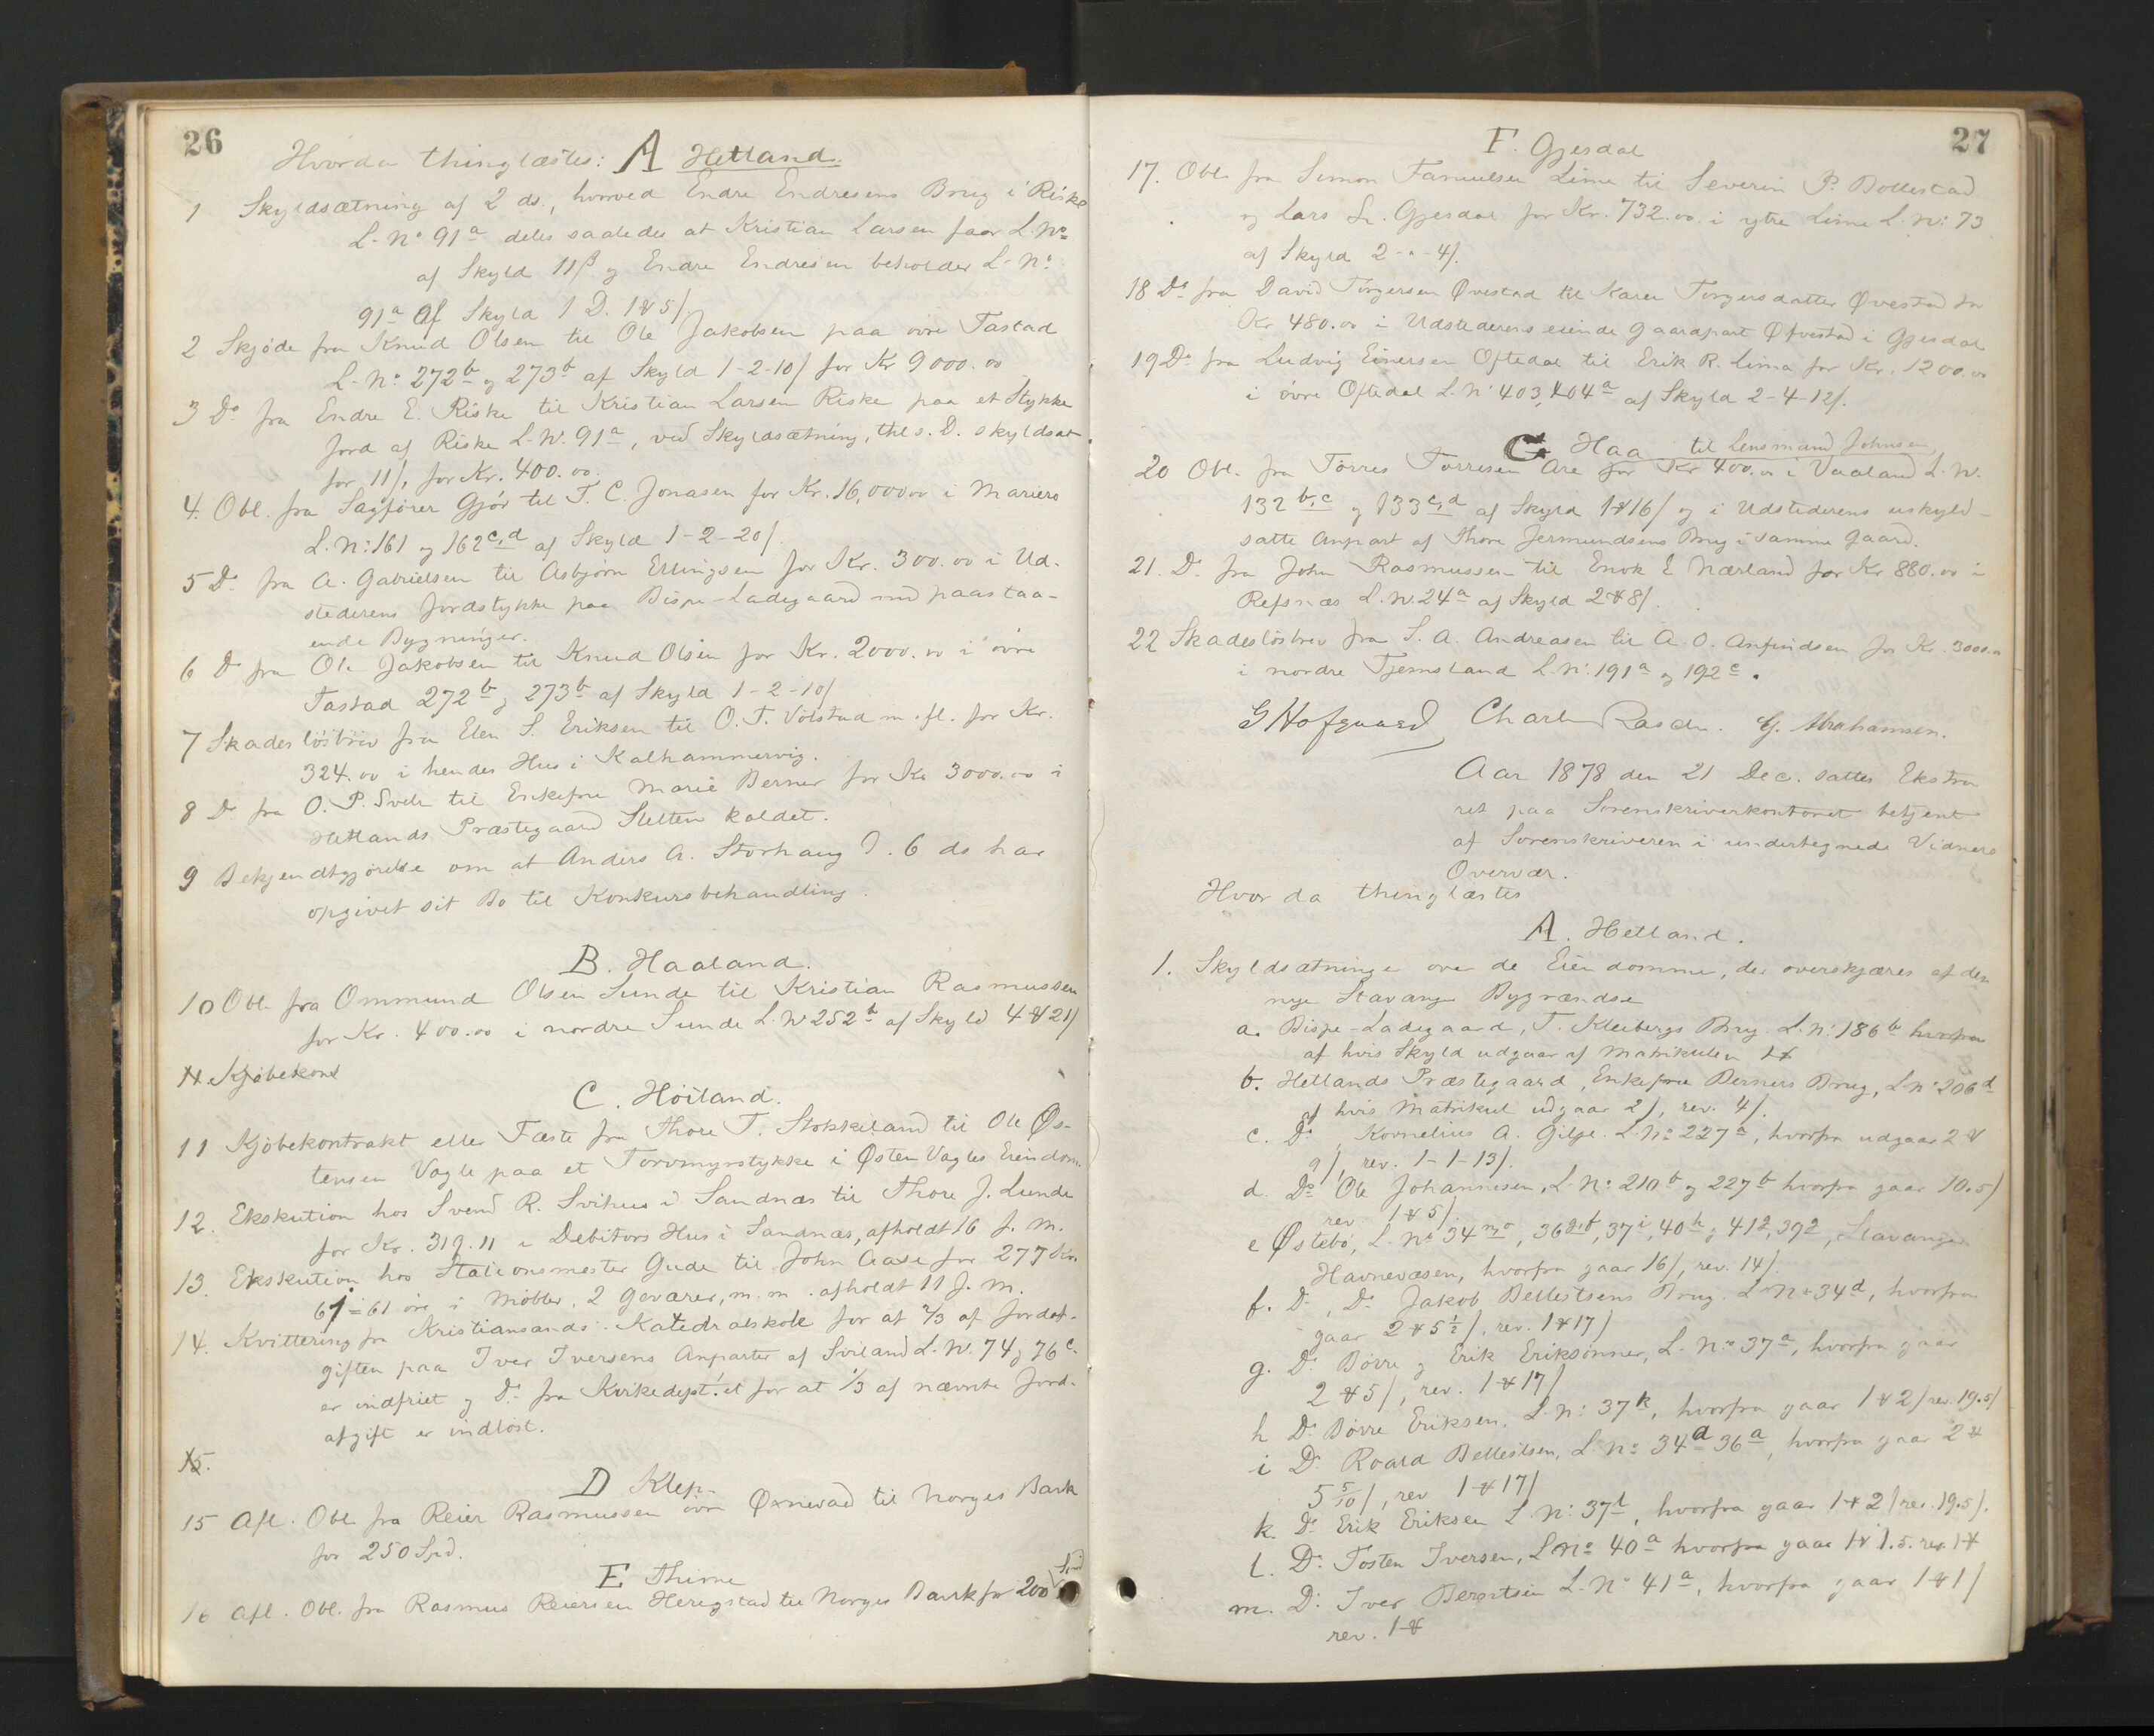 26
Hvorda thinglæstes: A Hetland.
1 Skyldsætning af 2 ds., hvorved Endre Endresens Brug i Riske
L. No 91a deles saaledes at Kristian Larsen faar L. No
af Skyld 11 ß og Endre Endresen beholder L. No
91a af Skyld 1 D. 1 ₰ 5/
2 Skjøde fra Knud Olsen til Ole Jakobsen paa øvre Tastad
L. No: 272b og 273b af Skyld 1-2-10/ for Kr 9000.00
3 Do fra Endre E. Riske til Kristian Larsen Riske paa et Stykke
Jord af Riske L. No. 91a, ved Skyldsætning, thl s. D. skyldsat
for 11/, for Kr. 400.00.
4. Obl. fra Sagfører Gjør til T. C. Jonasen for Kr. 16,000 00 i Mariero
L. No: 161 og 162c,d af Skyld 1-2-20/
5 Do fra A. Gabrielsen til Asbjørn Ellingsen for Kr. 300.00 i Ud-
stederens Jordstykke paa Bispe-Ladegaard med paastaa-
ende Bygninger.
6 Do fra Ole Jakobsen til Knud Olsen for Kr. 2000.00 i øvre
Tastad 272b og 273b af Skyld 1-2-10/
7 Skadesløsbrev fra Elen S. Eriksen til O. T. Volstad m. fl. for Kr.
324.00 i hendes Hus i Kalhammervig.
8 Do fra O. P. Svele til Enkefru Marie Berner for Kr 3000.00 i
Hetlands Præstegaard Sletten kaldet.
9 Bekjendtgjørelse om at Anders A. Storhaug D. 6 ds har
opgivet sit Bo til Konkursbehandling.
B. Haaland.
10 Obl. fra Ommund Olsen Sunde til Kristian Rasmussen
for Kr. 400.00 i nordre Sunde L. No 252b af Skyld 4 ₰ 21/
11. Kjøbekont
C. Høiland.
11 Kjøbekontrakt eller Fæste fra Thore T. Stokkeland til Ole Øs-
tensen Vagle paa et Torvmyrstykke i Østen Vagles Eiendom.
12. Ekskution hos Svend R. Svihus i Sandnæs til Thore J. Lunde
for Kr. 319.11 i Debitors Hus i Sandnæs, afholdt 16 f. M.
13. Ekskution hos Stationsmester Gude til John Aase for 277 Kr.
61 = 61 øre i Møbler, 2 Geværer, m. m. afholdt 11 f. M.
14. Kvittering fra Kristiansands Katedralskole for at 2/3 af Jordaf-
giften paa Iver Iversens Anparter af Sviland L. No. 74 og 76c
er indfriet og Do fra Kirkedept!et for at 1/3 af nævnte Jord-
afgift er indløst.
15.
D Klep.
15 Afl. Obl. fra Reier Rasmussen øvre Øxnevad til Norges Bank
for 250 Spd.
E Thime
16 Afl. Obl. fra Rasmus Reiersen Herigstad til Norges Bank for 200 Spd
27
F. Gjesdal
17. Obl. fra Simon Samuelsen Lime til Severin P. Bollestad
og Lars L. Gjesdal for Kr. 732.00 i ytre Lime L. No: 73
af Skyld 2-"-4/.
18 Do fra David Torgersen Øvestad til Karen Torgersdatter Øvestad for
Kr 480.00 i Udstederens eiende Gaardpart Øfvestad i Gjesdal
19 Do fra Ludvig Einersen Oftedal til Erik R. Lima for Kr. 1200.00
i øvre Oftedal L. No 403, 404a af Skyld 2-4-12/.
G. Haa til Lensmand Johnsen
20 Obl. fra Tørres Tørresen Are for Kr 400.00 i Vaaland L. No.
132b,c og 133c,d af Skyld 1 ₰ 16/ og i Udstederens uskyld-
satte Anpart af Thore Jermundsens Brug i samme Gaard.
21. Do fra John Rasmussen til Enok E Nærland for Kr 880.00 i
Refsnæs L. No. 24a af Skyld 2 ₰ 8/.
22 Skadesløsbrev fra S. A. Andreasen til A. O. Anfindsen for Kr. 3000.00
i nordre Tjemsland L. No: 191a og 192c.
G Hofgaard Charles Rasch. G. Abrahamsen.
Aar 1878 den 21 Dec. sattes Ekstra
ret paa Sorenskriverkontoret betjent
af Sorenskriveren i undertegnede Vidners
Overvær.
Hvor da thinglæstes
A. Hetland.
1. Skyldsætninger over de Eiendomme, der overskjæres af den
nye Stavanger Bygrændse
a. Bispe-Ladegaard, T. Kleibergs Brug. L. No: 186b hvorfra
af hvis Skyld udgaar af Matrikulen 1 ₰
b. Hetlands Præstegaard, Enkefrue Berners Brug, L No 206d
af hvis Matrikul udgaar 2/, rev. 4/.
c. Do, Kornelius A. Gilje. L. No 227a, hvorfra udgaar 2 ₰
9/, rev. 1-1-13/.
d. Do Ole Johannesen, L. No: 210b og 227b hvorfra gaar 10.5/
rev 1 ₰ 5/.
e Østebø, L. No 34n,o, 36 , 37i, 40h og 41 , 39 , Stavanger
Havnevæsen, hvorfra gaar 16/, rev. 14/.
f. Do, Do Jakob Bellestsens Brug. L No 34d, hvorfra
gaar 2 ₰ 5½/, rev. 1 ₰ 17/
g. Do Børre og Erik Eriksønner, L. No 37a, hvorfra gaar
2 ₰ 5/, rev. 1 ₰ 17/
h Do Børre Eriksen, L. No: 37k, hvorfra gaar 1 ₰ 2/ rev. 19.5/
i Do Roald Bellestsen, L. No 34d 36a, hvorfra gaar 2 ₰
5 5/10/, rev 1 ₰ 17/
k. Do Erik Eriksen L. No: 37l, hvorfra gaar 1 ₰ 2/ rev. 19.5/.
l. Do: Tosten Iversen, L No 40a hvorfra gaar 1 ₰ 1.5. rev. 1 ₰
m. Do: Iver Berentsen L. No 41a, hvorfra gaar 1 ₰ 1/
rev. 1 ₰